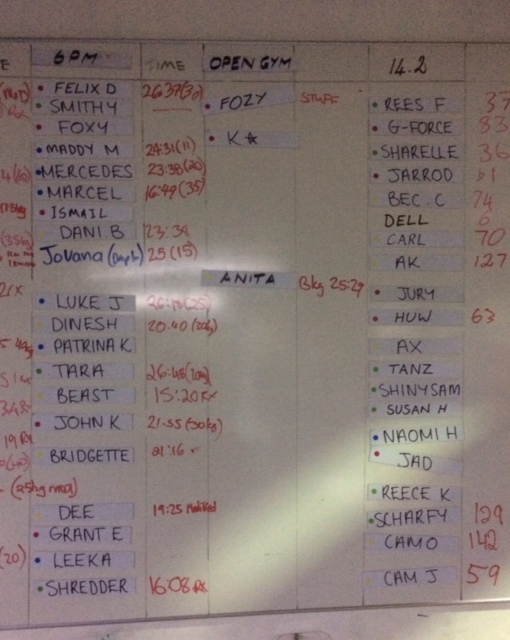 E 6PM TIME OPEN GYM 14.2
FELIX D 26:37(32)
SMITHY FOZY STUFF REES F 37
FOXY K☆ G-FORCE 33
MADDY M 24:31(11) SHARELLE 36
MERCEDES 23:38(20) JARROD
MARCEL 16:49(35) BEC.C 74
ISMAIL DELL 6
DANI.B 23:34 CARL 70
Jovana 25(15) AK 127
ANITA 8kg 25:29
LUKE J 26:10(25) JURY
DINESH 20.40 HUW 63
PATRINA K AX
TARA 26:48 TANZ
BEAST 15:20 RX SHINYSAM
SUSAN H
JOHN K 21:55 NAOMI H
BRIDGETTE 21:16 JAD
REECE K
DEE 19:25 Modified SCHARFY 129
GRANT E CAMO 142
(20) LEEKA
SHREDDER 16:08 RX CAM J 59